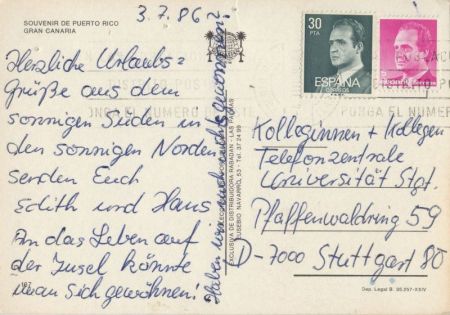 SOUVENIR DE PUERTO RICO
GRAN CANARIA
3.7.86
Herzliche Urlaubs=
Grüße aus dem
sonnigen Süden in
den sonnigen Norden
senden Euch
Edith und Haus
An das Leben auf
der Insel könnte
man sich gewöhnen!
Haben uns auch nichts gewonnen?
EXCLUSIVA DE DISTRIBUIDORA RABADAN - LAS PALMAS
EUSEBIO NAVARRO, 53 - Tel. 37 24 99
30
PTA
ESPAÑA
CORREOS
PONGA EL NUMERO
Kolleginnen + Kollegen
Telefonzentrale
Universität Stgt.
Pfaffenwaldring 59
D-7000 Stuttgart 80
Dep. Legal B. 35.257-XXIV